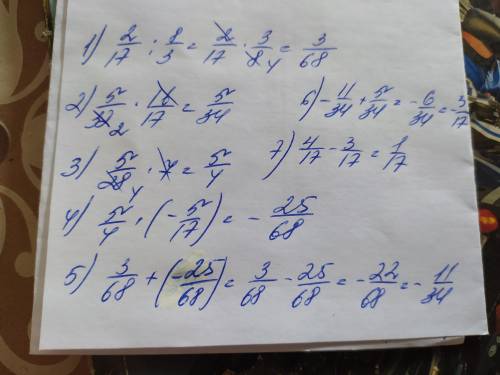 1) 2/17 : 8/3 = 2/17 · 3/8 4 = 3/68
2) 5/20 2 · 10/17 = 5/34
3) 5/28 4 · 7 = 5/4
4) 5/4 · (-5/17) = - 25/68
5) 3/68 + (-25/68) = 3/68 - 25/68 = - 22/68 = - 11/34
6) - 11/34 + 5/34 = - 6/34 = 3/17
7) 4/17 - 3/17 = 1/17